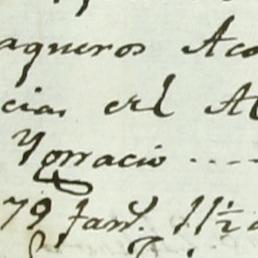 aqueros Aco
cias el A
Ygnacio ....
79 fan.s 11½